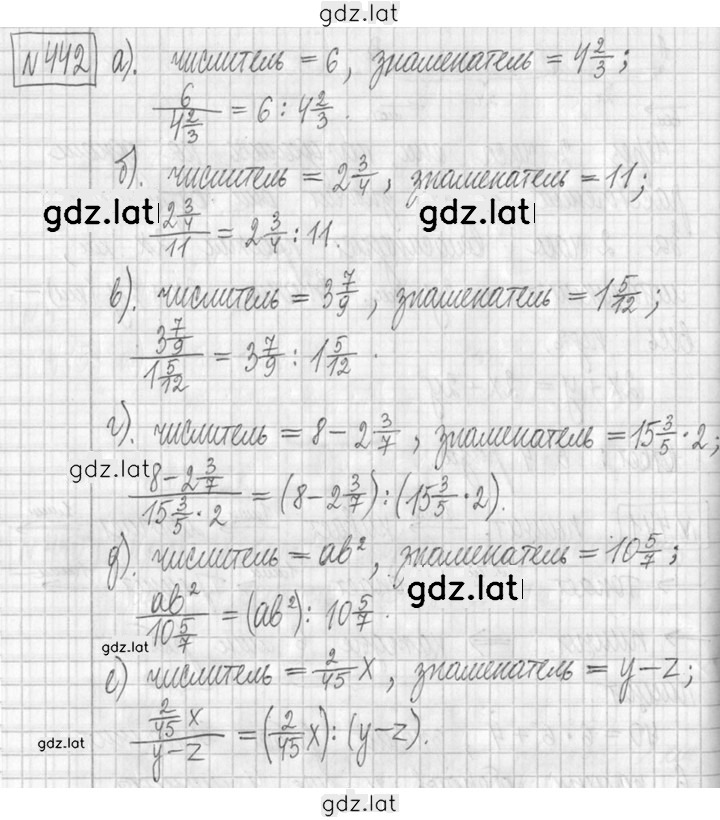 gdz.lat
№442 а). числитель = 6, знаменатель = 4 2/3;
6/(4 2/3) = 6 : 4 2/3.
б). числитель = 2 3/4, знаменатель = 11;
gdz.lat gdz.lat
(2 3/4)/11 = 2 3/4 : 11.
в). числитель = 3 7/9, знаменатель = 1 5/12;
(3 7/9)/(1 5/12) = 3 7/9 : 1 5/12.
г). числитель = 8 - 2 3/7, знаменатель = 15 3/5 · 2;
gdz.lat
(8 - 2 3/7)/(15 3/5 · 2) = (8 - 2 3/7) : (15 3/5 · 2).
д). числитель = ab², знаменатель = 10 5/7;
gdz.lat
ab²/(10 5/7) = (ab²) : 10 5/7.
gdz.lat
е) числитель = 2/45 x, знаменатель = y - z;
(2/45 x)/(y - z) = (2/45 x) : (y - z).
gdz.lat
gdz.lat